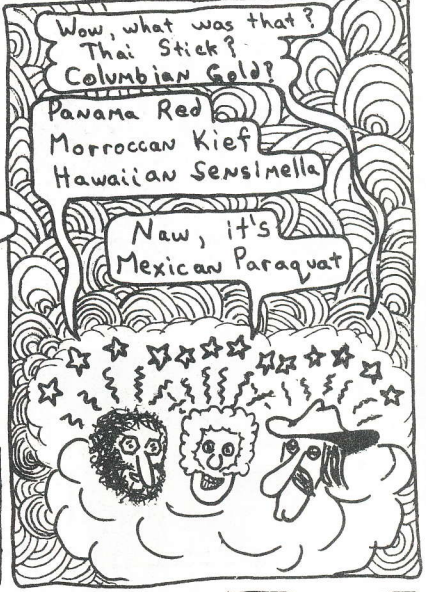 Wow, what was that?
Thai Stick?
Columbian Gold?
Panama Red
Morroccan Kief
Hawaiian Sensimella
Naw, it's
Mexican Paraquat